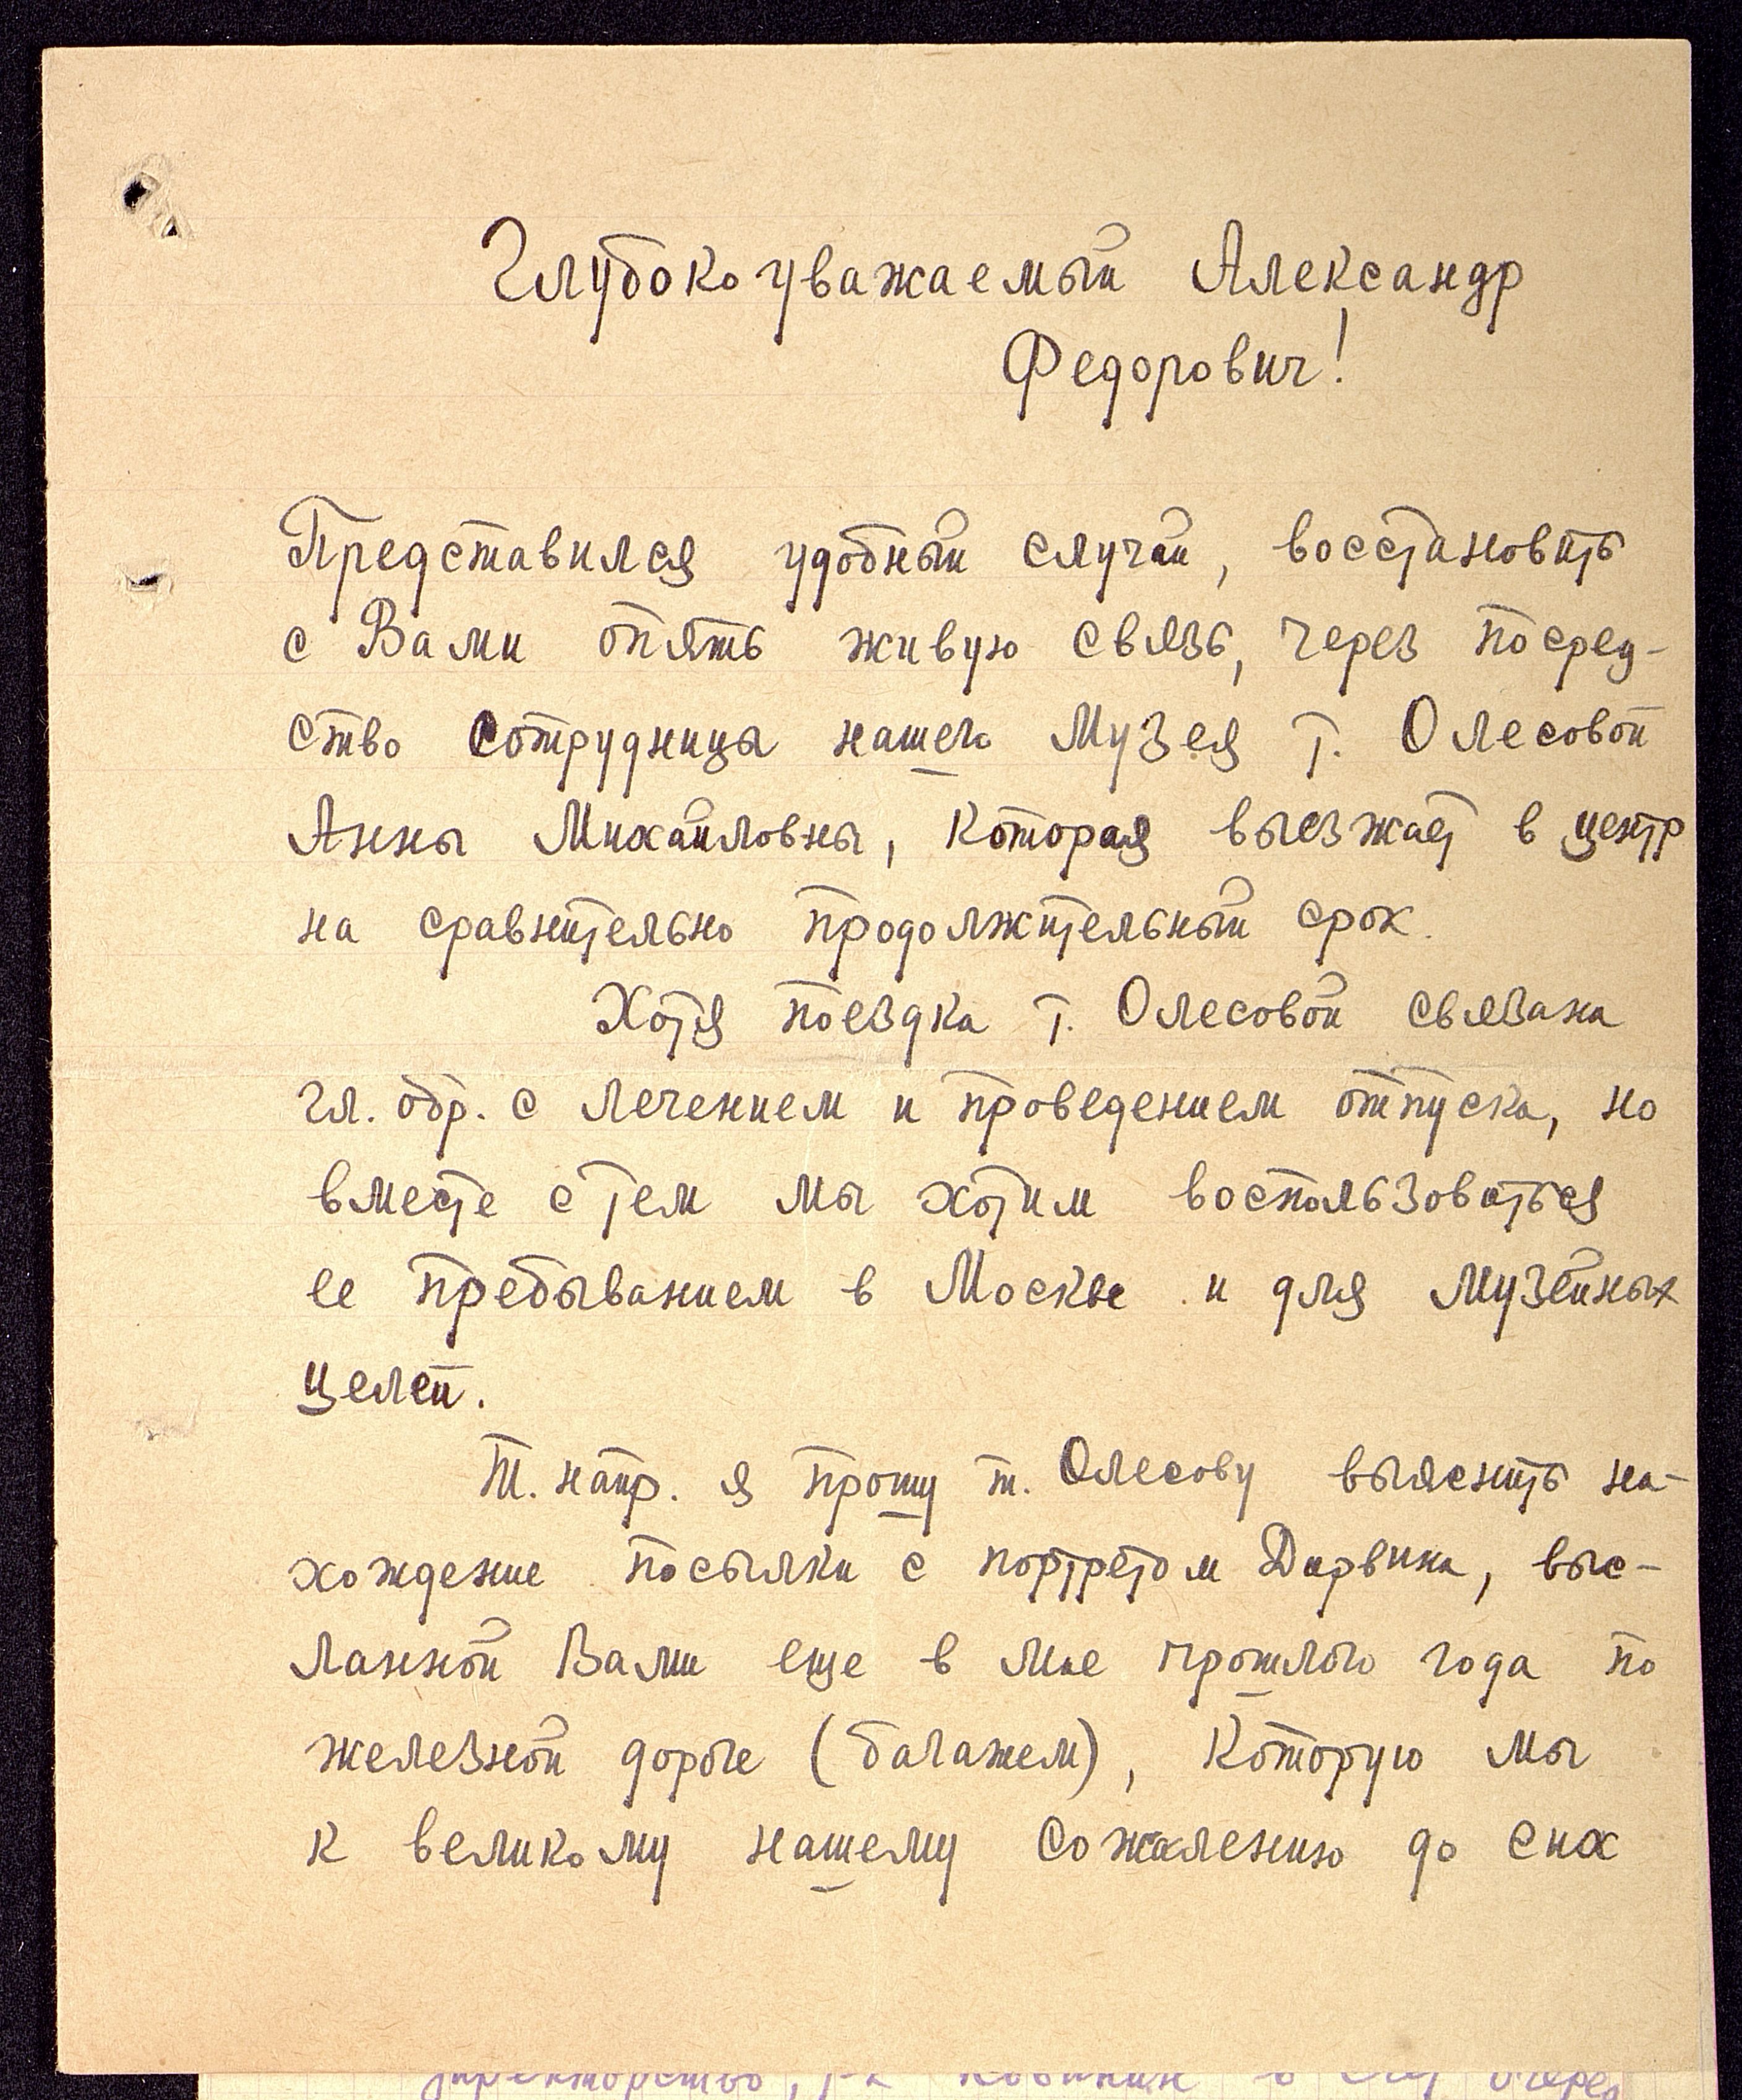 Глубокоуважаемый Александр
Федорович!
Представился удобный случай, восстановить
с Вами опять живую связь, через посред-
ство сотрудницы нашего Музея т. Олесовой
Анны Михайловны, которая выезжает в центр
на сравнительно продолжительный срок.
Хотя поездка т. Олесовой связана
гл. обр. с лечением и проведением отпуска, но
вместе с тем мы хотим воспользоваться
ее пребыванием в Москве и для музейных
целей.
Т. напр. я прошу т. Олесову выяснить на-
хождение посылки с портретом Дарвина, выс-
ланной Вами еще в мае прошлого года по
железной дороге (багажем), которую мы
к великому нашему сожалению до сих